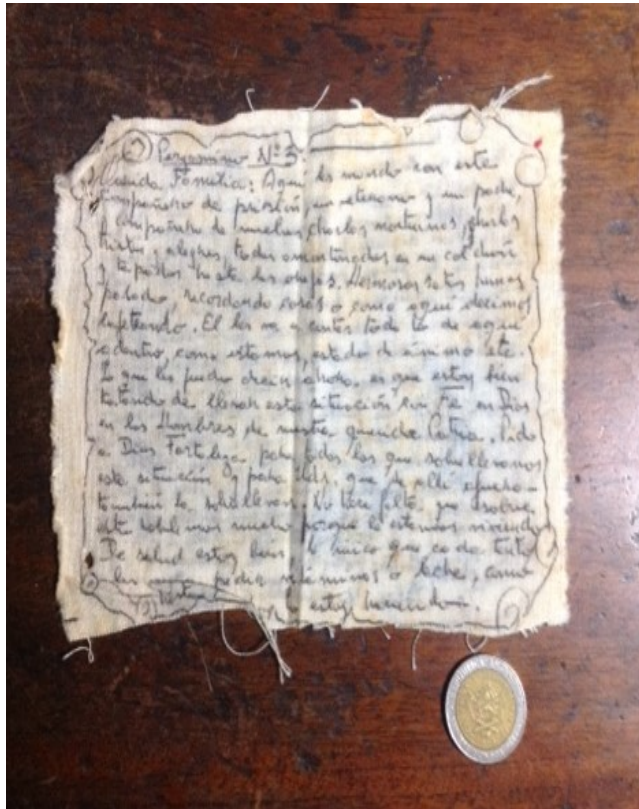 Pergamino Nº 3.
Querida Familia: Aquí les mando con este
compañero de prisión, un veterano y un padre,
compañero de muchas charlas nocturnas, charlas
tristes y alegres, todos en su colchón
y tapados hasta las orejas. Hermosas
recordando cosas o como aquí decimos
. El les va a contar todo lo de aquí
adentro, como estamos, estado de ánimo etc.
Lo que les puedo decir ahora, es que estoy bien
tratando de llevar esta situación con Fé en Dios
en los Hombres de nuestra querida Patria. Pido
a Dios Fortaleza para todos los que sobrellevamos
esta situación y para uds. que de allí afuera
también la sobrellevan. No hace falta que sobre
esto hablemos mucho porque lo estamos viviendo
De salud estoy bien, lo único que cada tanto
les pedia vitaminas o leche, como
estoy haciendo.